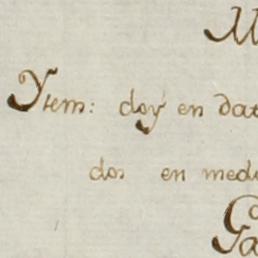 M
Ytem: doy en dat
dos en med